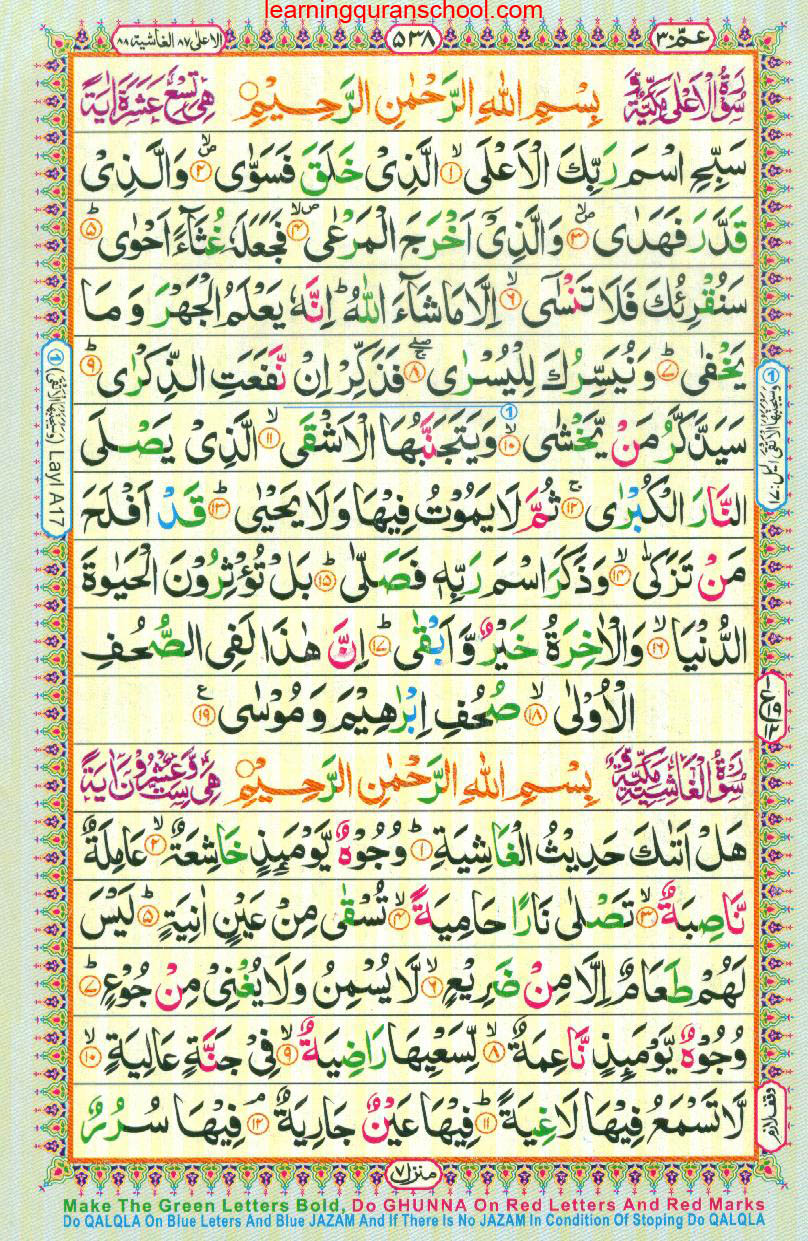 learningquranschool.com
عمّ ٣٠
٥٣٨
الاعلى ٨٧ الغاشية ٨٨
سُوْرَةُ الْاَعْلٰى مَكِّيَّةٌ بِسْمِ اللهِ الرَّحْمٰنِ الرَّحِيْمِ هِىَ تِسْعَ عَشَرَةَ اٰيَةً
سَبِّحِ اسْمَ رَبِّكَ الْاَعْلَى ۙ﴿۱﴾ الَّذِىْ خَلَقَ فَسَوّٰى ۙ﴿۲﴾ وَالَّذِىْ
قَدَّرَ فَهَدٰى ۙ﴿۳﴾ وَالَّذِىْۤ اَخْرَجَ الْمَرْعٰى ۙ﴿۴﴾ فَجَعَلَهٗ غُثَآءً اَحْوٰى ؕ﴿۵﴾
سَنُقْرِئُكَ فَلَا تَنْسٰٓى ۙ﴿۶﴾ اِلَّا مَا شَآءَ اللّٰهُ ؕ اِنَّهٗ يَعْلَمُ الْجَهْرَ وَ مَا
يَخْفٰى ؕ﴿۷﴾ وَنُيَسِّرُكَ لِلْيُسْرٰى ۚ﴿۸﴾ فَذَكِّرْ اِنْ نَّفَعَتِ الذِّكْرٰى ؕ﴿۹﴾
سَيَذَّكَّرُ مَنْ يَّخْشٰى ۙ﴿۱۰﴾ وَيَتَجَنَّبُهَا الْاَشْقَى ۙ﴿۱۱﴾ الَّذِىْ يَصْلَى
النَّارَ الْكُبْرٰى ۚ﴿۱۲﴾ ثُمَّ لَا يَمُوْتُ فِيْهَا وَلَا يَحْيٰى ؕ﴿۱۳﴾ قَدْ اَفْلَحَ
مَنْ تَزَكّٰى ۙ﴿۱۴﴾ وَذَكَرَ اسْمَ رَبِّهٖ فَصَلّٰى ؕ﴿۱۵﴾ بَلْ تُؤْثِرُوْنَ الْحَيٰوةَ
الدُّنْيَا ۙ﴿۱۶﴾ وَالْاٰخِرَةُ خَيْرٌ وَّاَبْقٰى ؕ﴿۱۷﴾ اِنَّ هٰذَا لَفِى الصُّحُفِ
الْاُوْلٰى ۙ﴿۱۸﴾ صُحُفِ اِبْرٰهِيْمَ وَ مُوْسٰى ﴿۱۹﴾
سُوْرَةُ الْغَاشِيَةِ مَكِّيَّةٌ بِسْمِ اللهِ الرَّحْمٰنِ الرَّحِيْمِ هِىَ سِتٌّ وَّعِشْرُوْنَ اٰيَةً
هَلْ اَتٰىكَ حَدِيْثُ الْغَاشِيَةِ ؕ﴿۱﴾ وُجُوْهٌ يَّوْمَٮِٕذٍ خَاشِعَةٌ ۙ﴿۲﴾ عَامِلَةٌ
نَّاصِبَةٌ ۙ﴿۳﴾ تَصْلٰى نَارًا حَامِيَةً ۙ﴿۴﴾ تُسْقٰى مِنْ عَيْنٍ اٰنِيَةٍ ؕ﴿۵﴾ لَيْسَ
لَهُمْ طَعَامٌ اِلَّا مِنْ ضَرِيْعٍ ۙ﴿۶﴾ لَّا يُسْمِنُ وَلَا يُغْنِىْ مِنْ جُوْعٍ ؕ﴿۷﴾
وُجُوْهٌ يَّوْمَٮِٕذٍ نَّاعِمَةٌ ۙ﴿۸﴾ لِّسَعْيِهَا رَاضِيَةٌ ۙ﴿۹﴾ فِىْ جَنَّةٍ عَالِيَةٍ ۙ﴿۱۰﴾
لَّا تَسْمَعُ فِيْهَا لَاغِيَةً ؕ﴿۱۱﴾ فِيْهَا عَيْنٌ جَارِيَةٌ ۘ﴿۱۲﴾ فِيْهَا سُرُرٌ
وقف لازم
Layl A17
منزل ٧
Make The Green Letters Bold, Do GHUNNA On Red Letters And Red Marks
Do QALQLA On Blue Leters And Blue JAZAM And If There Is No JAZAM In Condition Of Stoping Do QALQLA